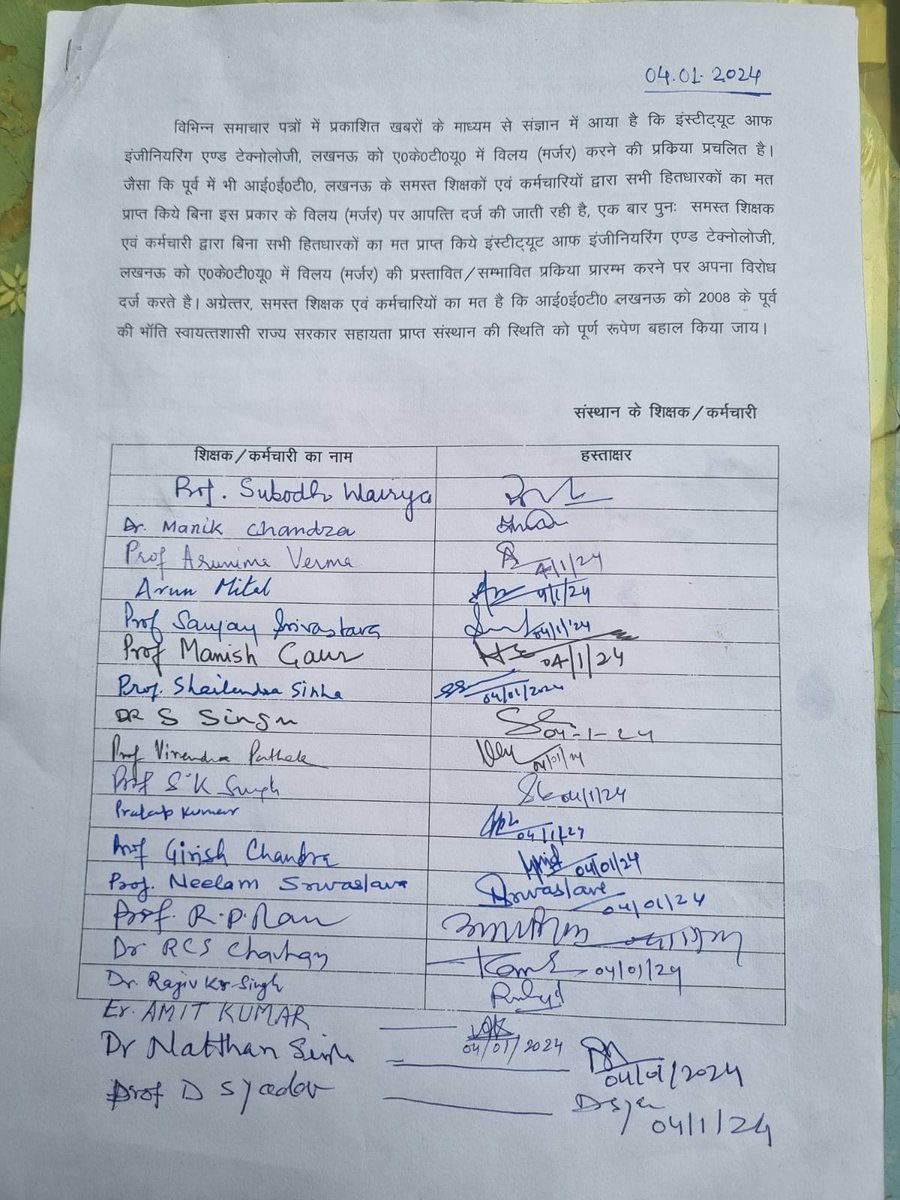 04.01.2024
विभिन्न समाचार पत्रों में प्रकाशित खबरों के माध्यम से संज्ञान में आया है कि इंस्टीट्यूट आफ
इंजीनियरिंग एण्ड टेक्नोलोजी, लखनऊ को ए०के०टी०यू० में विलय (मर्जर) करने की प्रकिया प्रचलित है।
जैसा कि पूर्व में भी आई0ई0टी0, लखनऊ के समस्त शिक्षकों एवं कर्मचारियों द्वारा सभी हितधारकों का मत
प्राप्त किये बिना इस प्रकार के विलय (मर्जर) पर आपत्ति दर्ज की जाती रही है, एक बार पुनः समस्त शिक्षक
एवं कर्मचारी द्वारा बिना सभी हितधारकों का मत प्राप्त किये इंस्टीट्यूट आफ इंजीनियरिंग एण्ड टेक्नोलोजी,
लखनऊ को ए०के०टी०यू० में विलय (मर्जर) की प्रस्तावित/सम्भावित प्रकिया प्रारम्भ करने पर अपना विरोध
दर्ज करते है। अग्रेत्तर, समस्त शिक्षक एवं कर्मचारियों का मत है कि आई0ई0टी0 लखनऊ को 2008 के पूर्व
की भॉति स्वायत्तशासी राज्य सरकार सहायता प्राप्त संस्थान की स्थिति को पूर्ण रूपेण बहाल किया जाय।
संस्थान के शिक्षक/कर्मचारी
शिक्षक/कर्मचारी का नाम हस्ताक्षर
Prof. Subodh Wairya
Dr. Manik Chandra
Prof Arunima Verma 4/1/24
Arun Mital 4/1/24
Prof Sanjay Srivastava 04/1/24
Prof Manish Gaur 04/1/24
Prof. Shailendra Sinha 04/01/2024
DR S Singh 04-1-24
Prof Virendra Pathak 04/01/24
Prof S K Singh 04/1/24
Pratap Kumar 04/1/24
Prof Girish Chandra 04/01/24
Prof. Neelam Srivastava Srivastava 04/01/24
Prof. R.P.
Dr RCS Chauhan 04/01/24
Dr. Rajiv Kr. Singh
Er. AMIT KUMAR 04/01/2024
Dr Natthan Singh 04/01/2024
Prof D S Yadav 04/1/24